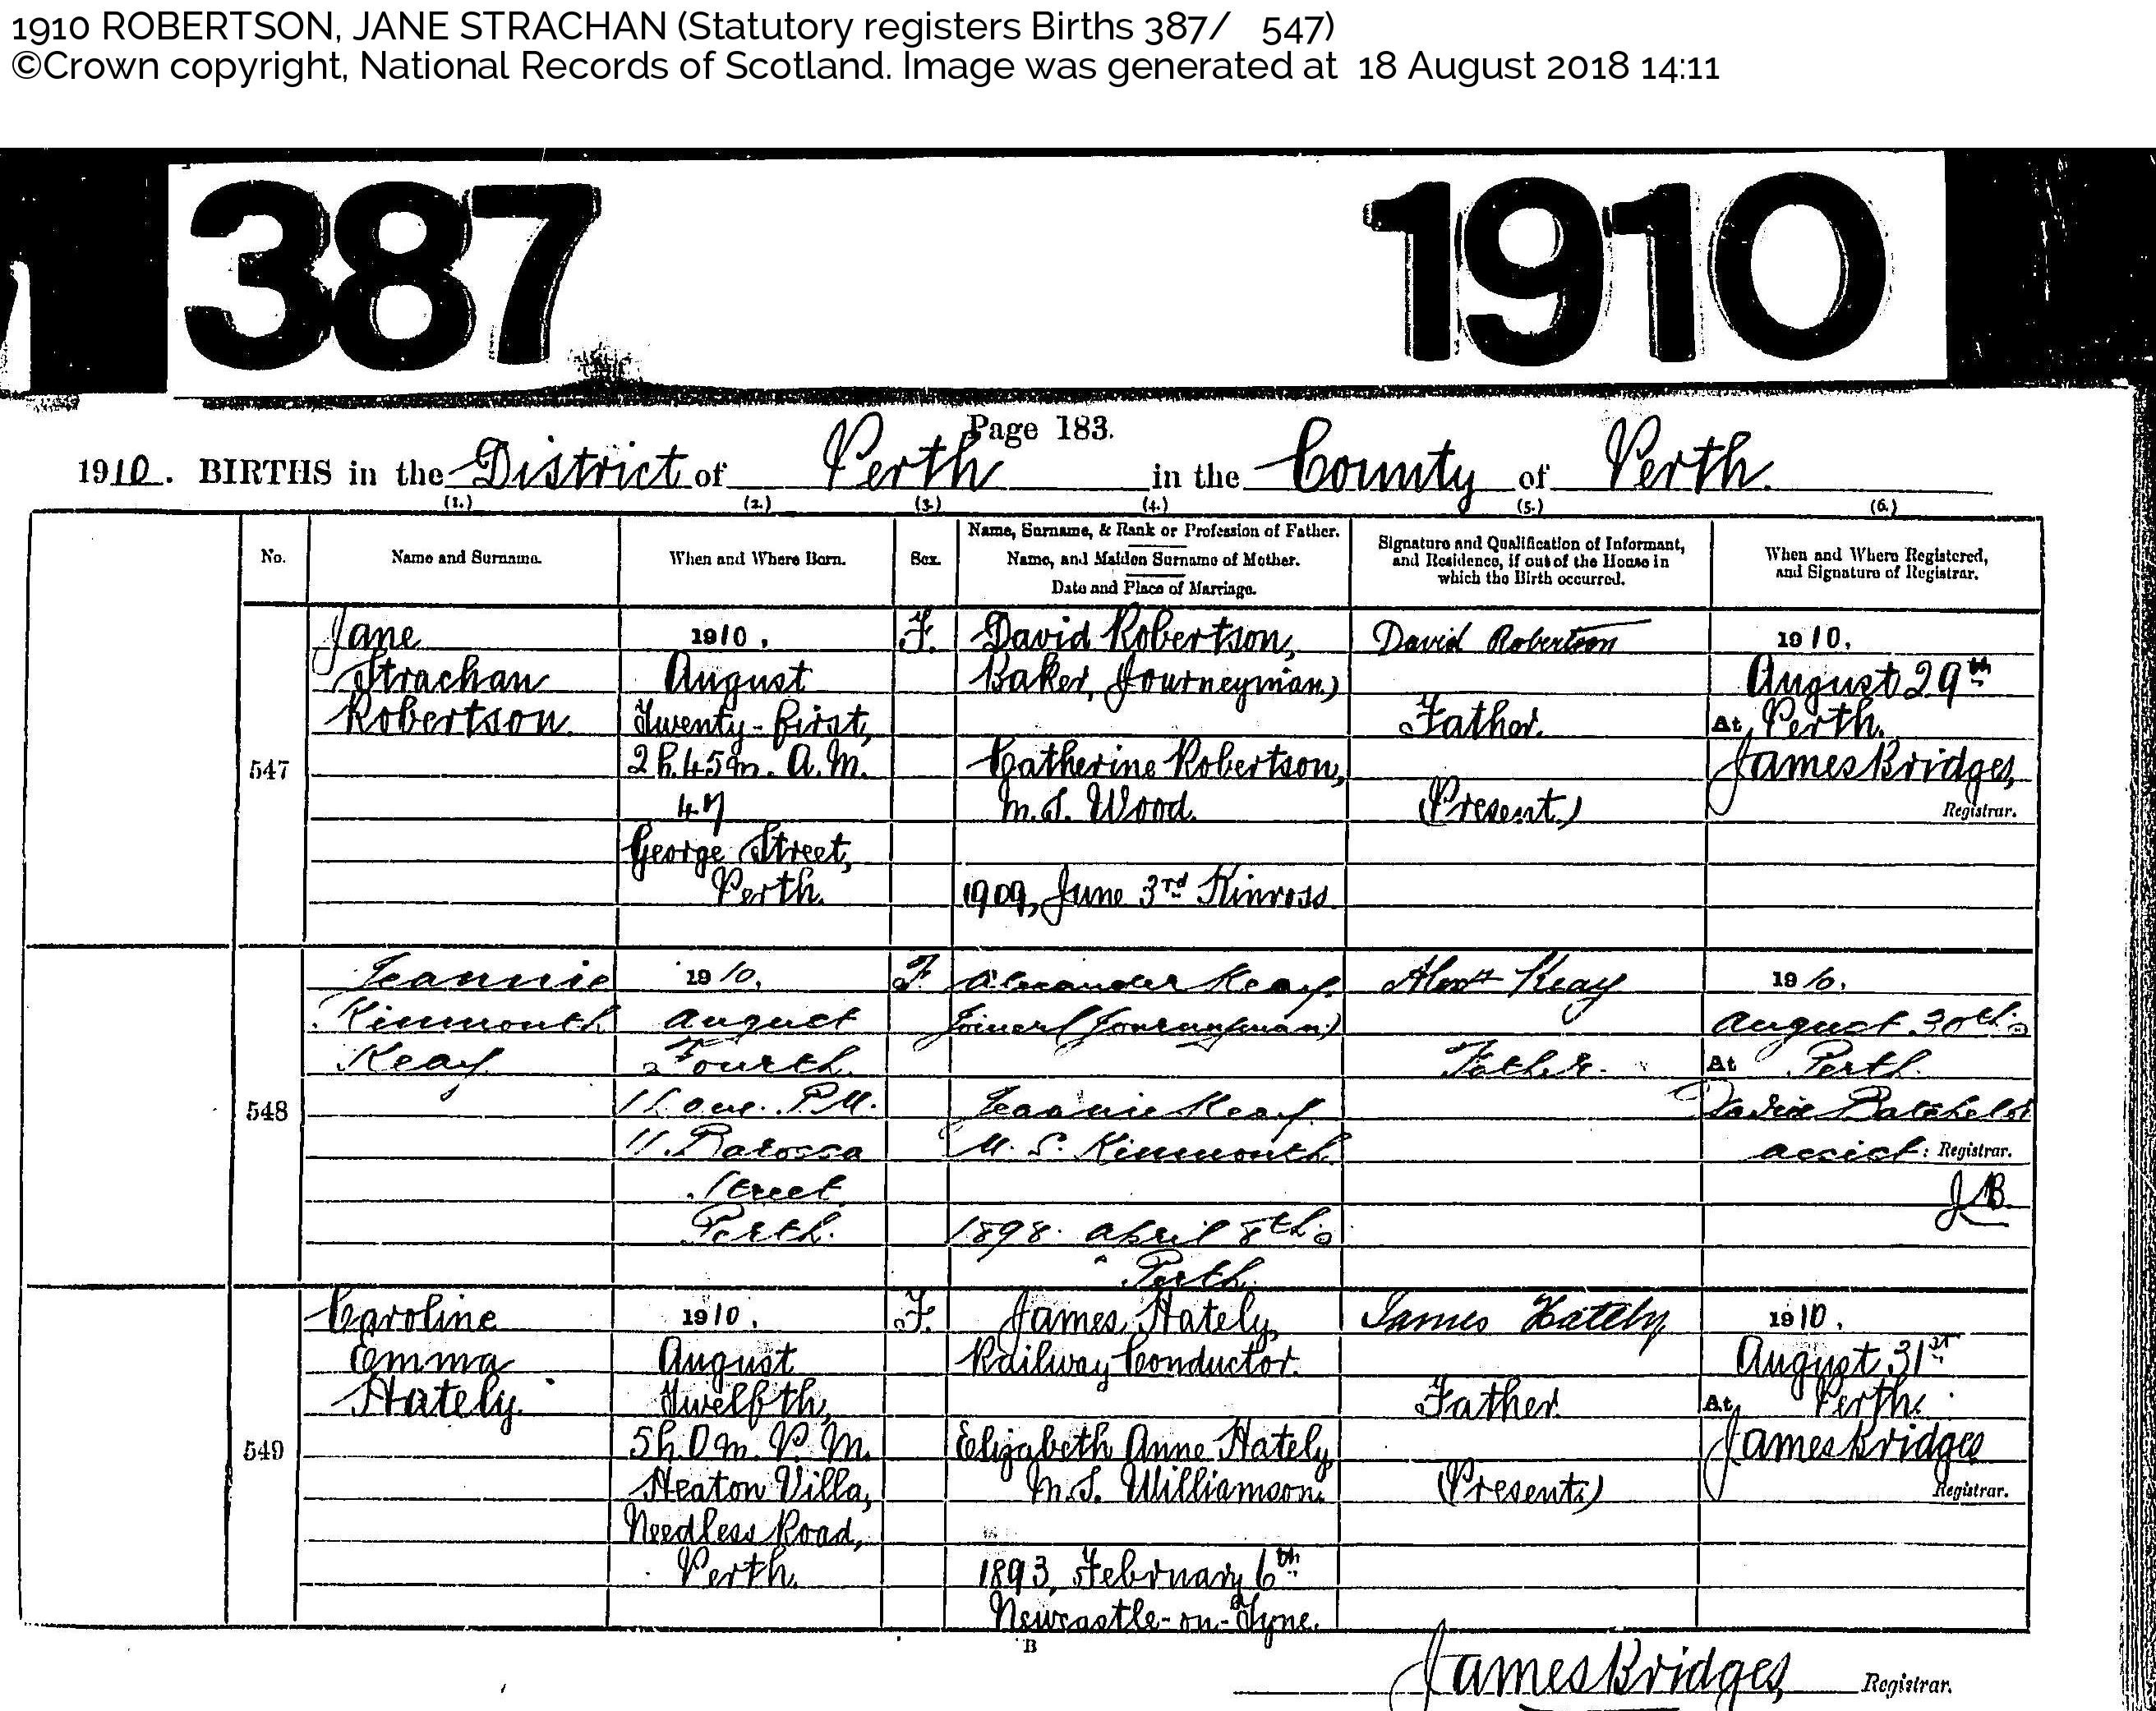 1910 ROBERTSON, JANE STRACHAN (Statutory registers Births 387/ 547)
©Crown copyright, National Records of Scotland. Image was generated at 18 August 2018 14:11
387 1910
Page 183.
1910. BIRTHS in the District of Perth in the County of Perth.
(1.) (2.) (3.) (4.) (5.) (6.)
No.
Name and Surname.
When and Where Born.
Sex.
Name, Surname, & Rank or Profession of Father.
Name, and Maiden Surname of Mother.
Date and Place of Marriage.
Signature and Qualification of Informant,
and Residence, if out of the House in
which the Birth occurred.
When and Where Registered,
and Signature of Registrar.
547
Jane
Strachan
Robertson.
1910,
August
Twenty-first,
2h.45m. A.M.
47
George Street,
Perth.
F.
David Robertson,
Baker, (Journeyman)
Catherine Robertson,
M.S. Wood.
1909, June 3rd Kinross
David Robertson
Father.
(Present.)
1910,
August 29th
At Perth.
James Bridges,
Registrar.
548
Jeannie
Kinmonth
Keay
1910,
August
Fourth.
P.M.
11. Barossa
Street
Perth.
F
Alexander Keay.
Joiner (Journeyman)
Jeannie Keay.
M.S. Kinmonth
1898. April 8th.
Perth.
Alexr Keay
Father.
1910.
August 30th.
At Perth
David Batchelor
assist: Registrar.
J.B.
549
Caroline
Emma
Hately.
1910,
August
Twelfth,
5h.0m. P.M.
Heaton Villa,
Needless Road,
Perth.
F.
James Hately,
Railway Conductor.
Elizabeth Anne Hately
M.S. Williamson.
1893, February 6th
Newcastle-on-Tyne.
James Hately
Father.
(Present.)
1910,
August 31st
At Perth.
James Bridges
Registrar.
B
James Bridges, Registrar.